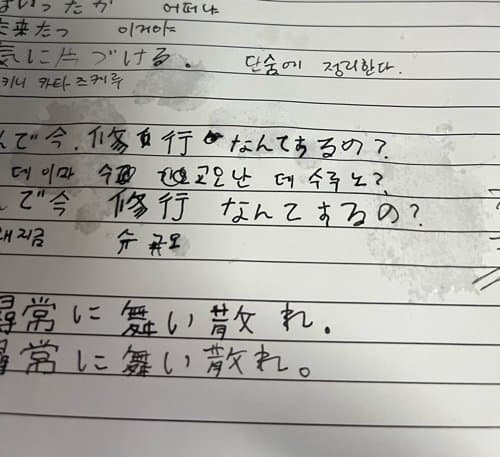 まいったか 어떠냐
出来たっ 이거야
気に片づける. 단숨에 정리한다.
키니 카타즈케루
んで今. 修 行 なんてするの?
데 이마 수 교오난 데 수루 노?
んで今 修行 なんてするの?
왜지금 슈 쿄오
尋常に舞い散れ.
尋常に舞い散れ。